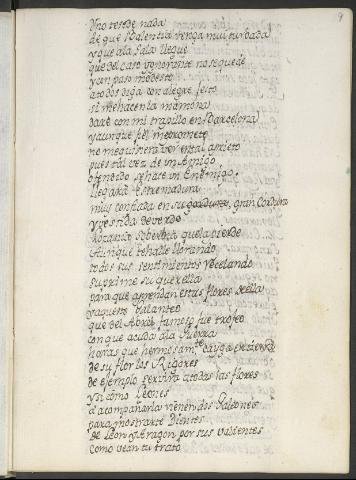 9
Uno testede nada
de que Balentia venga mui turbada
y que ala Sala llegue
que del caso ygnorante no se quede
y an paso modesto
a todos diga con alegre jesto
si me hacen la mamona
dare con mi trapillo en Barcelona
y aunque fiel me prometo
no me quisiera ver en tal aprieto
pues tal vez de un Amigo
ofendido se hace un Enemigo
llegara Estremadura
mui confiada en su gran Cordura
y vestida de verde
Rozando soberbia que la pierde
aunque se halle llorando
todos sus sentimientos recelando
suprime su querella
para que aprendan estas flores della
y aqueste Valenton
que del Abril famoso fue trofeo
con que acuda ala
haras que hermosamte caiga
de su flor los Rigores
de exemplo servira a todas las flores
y si como Leones
a acompañarla vienen dos Ratones
para mostrarte Dientes
de Leon y Aragon por sus valientes
como vean tu trato